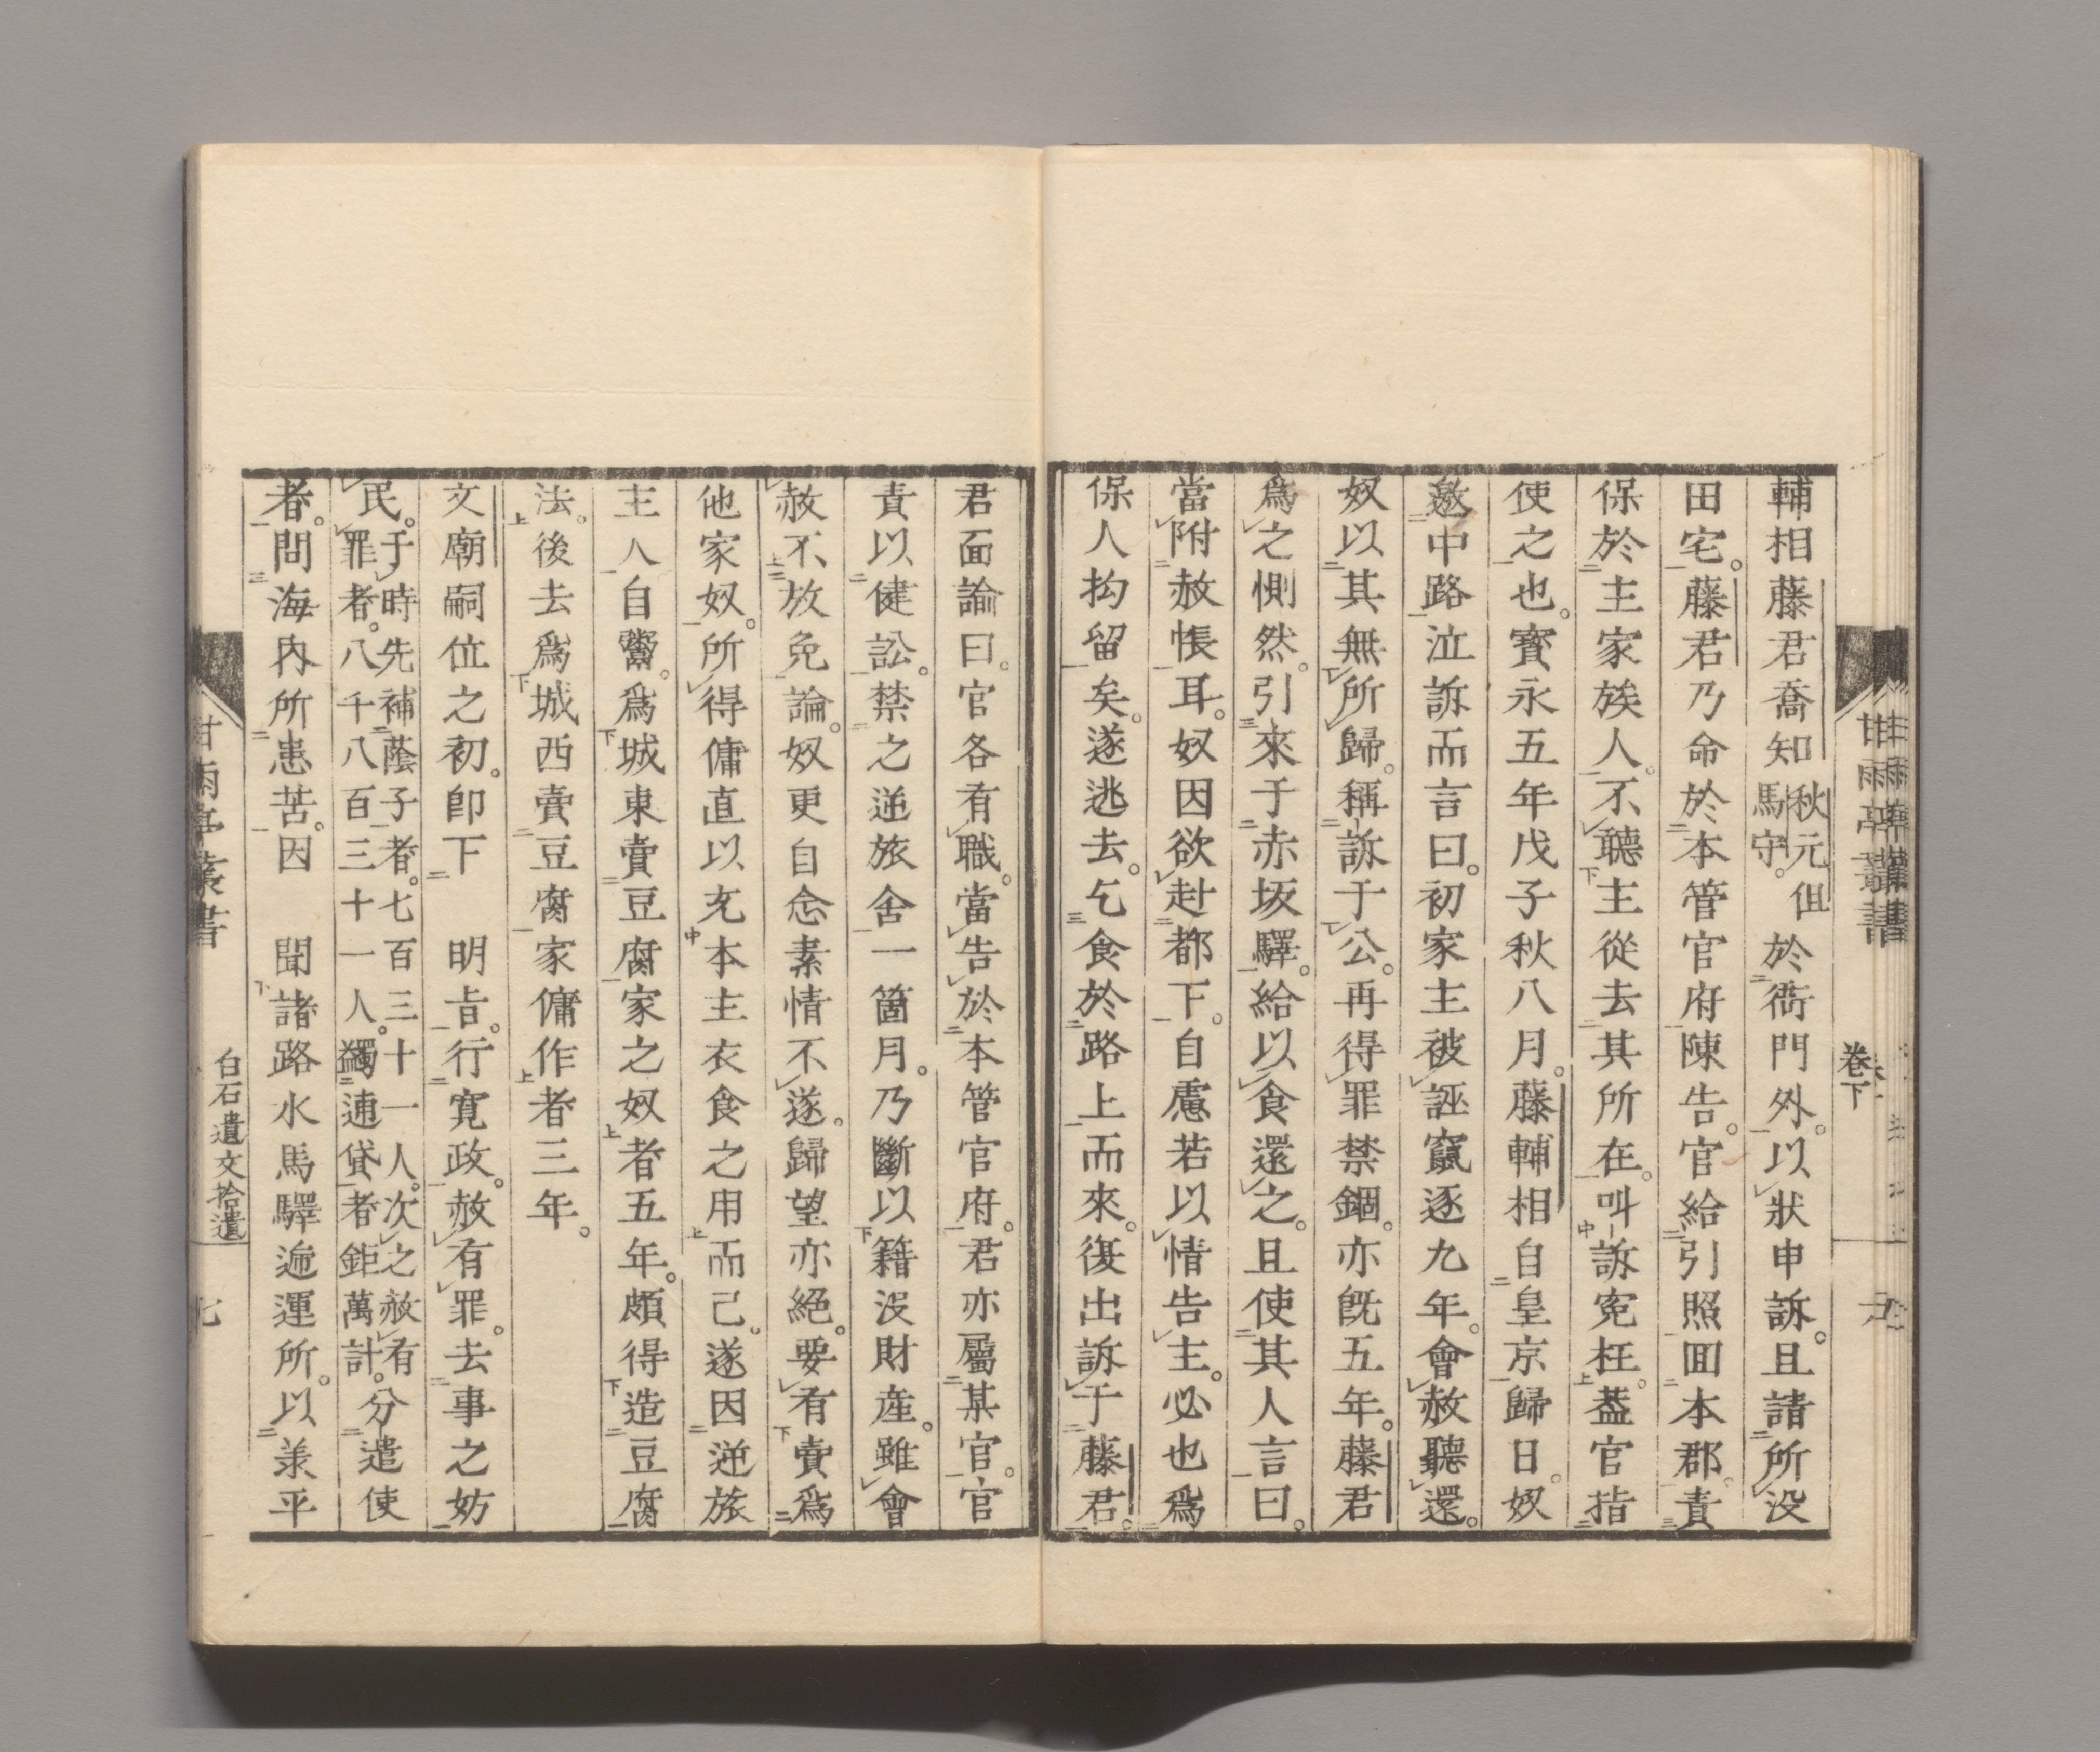 輔相藤君喬知秋元但馬守。於衙門外。以狀申訴。且請所沒
田宅。藤君乃命於本管官府陳告。官給引照囬本郡。責
保於主家族人。不聽主從去其所在。叫訴寃枉。葢官指
使之也。寳永五年戊子秋八月。藤輔相自皇京歸日。奴
邀中路泣訴而言曰。初家主被誣竄逐九年。會赦聽還。
奴以其無所歸。稱訴于公。再得罪禁錮。亦旣五年。藤君
爲之惻然。引來于赤坂驛。給以食還之。且使其人言曰。
當附赦帳耳。奴因欲赴都下。自慮若以情告主。必也爲
保人拘留矣。遂逃去。乞食於路上而來。復出訴于藤君。
君面諭曰。官各有職。當告於本管官府。君亦屬某官。官
責以健訟。禁之逆旅舍一箇月。乃斷以籍沒財産。雖會
赦不放免論。奴更自念素情不遂。歸望亦絕。要有賣爲
他家奴。所得傭直以充本主衣食之用而己。遂因逆旅
主人自鬻。爲城東賣豆腐家之奴者五年。頗得造豆腐
法。後去爲城西賣豆腐家傭作者三年。
文廟嗣位之初。卽下　明旨。行寛政。赦有罪。去事之妨
民。于時先補蔭子者。七百三十一人。次之赦有罪者。八千八百三十一人。蠲逋貸者鉅萬計。分遣使
者。問海內所患苦。因　聞諸路水馬驛遞運所。以羨平
甘雨亭叢書
卷下
白石遺文拾遺
七